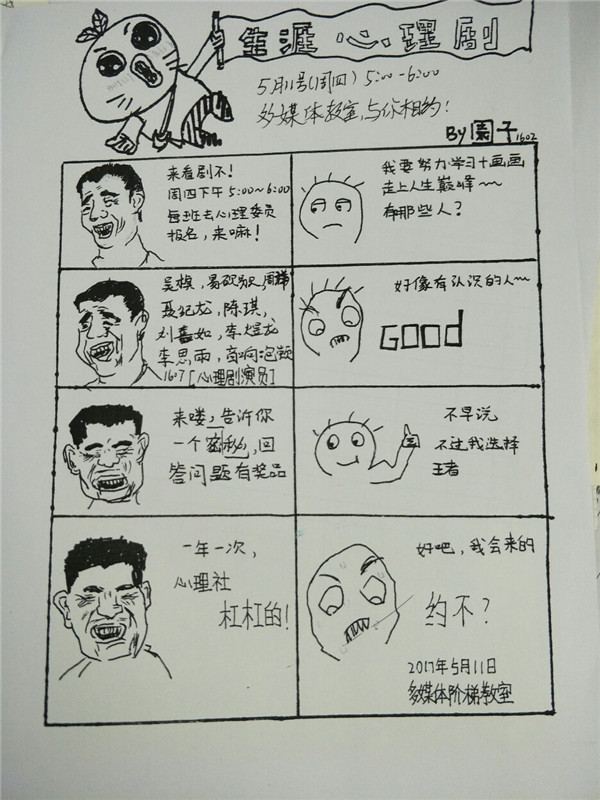 生涯心理剧
5月11号(周四) 5:00-6:00
多媒体教室,与你相约!
By 園子 1602
来看剧不!
周四下午5:00~6:00
每班去心理委员
报名,来嘛!
我要努力学习+画画
走上人生巅峰~~
有那些人?
聂纪龙,陈琪,
刘喜如,李煜龙
李思雨,
1607[心理剧演员]
好像有认识的人~~
GOOd
来喽,告诉你
一个密秘,回
答问题有奖品
不早说
不过我选择
王者
一年一次,
心理社
杠杠的!
好吧,我会来的
约不?
2017年5月11日
多媒体阶梯教室